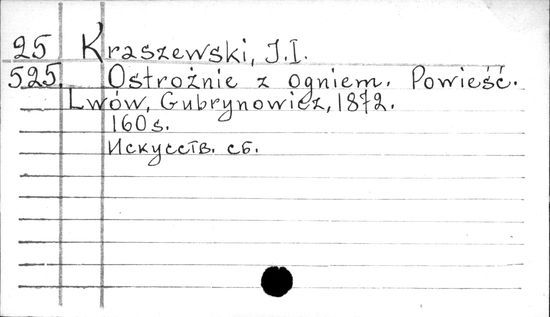 25 Kraszewski, J.I.
525. Ostrożnie z ogniem. Powieść.
Lwów, Gubrynowicz, 1872.
160 s.
Искусств. сб.